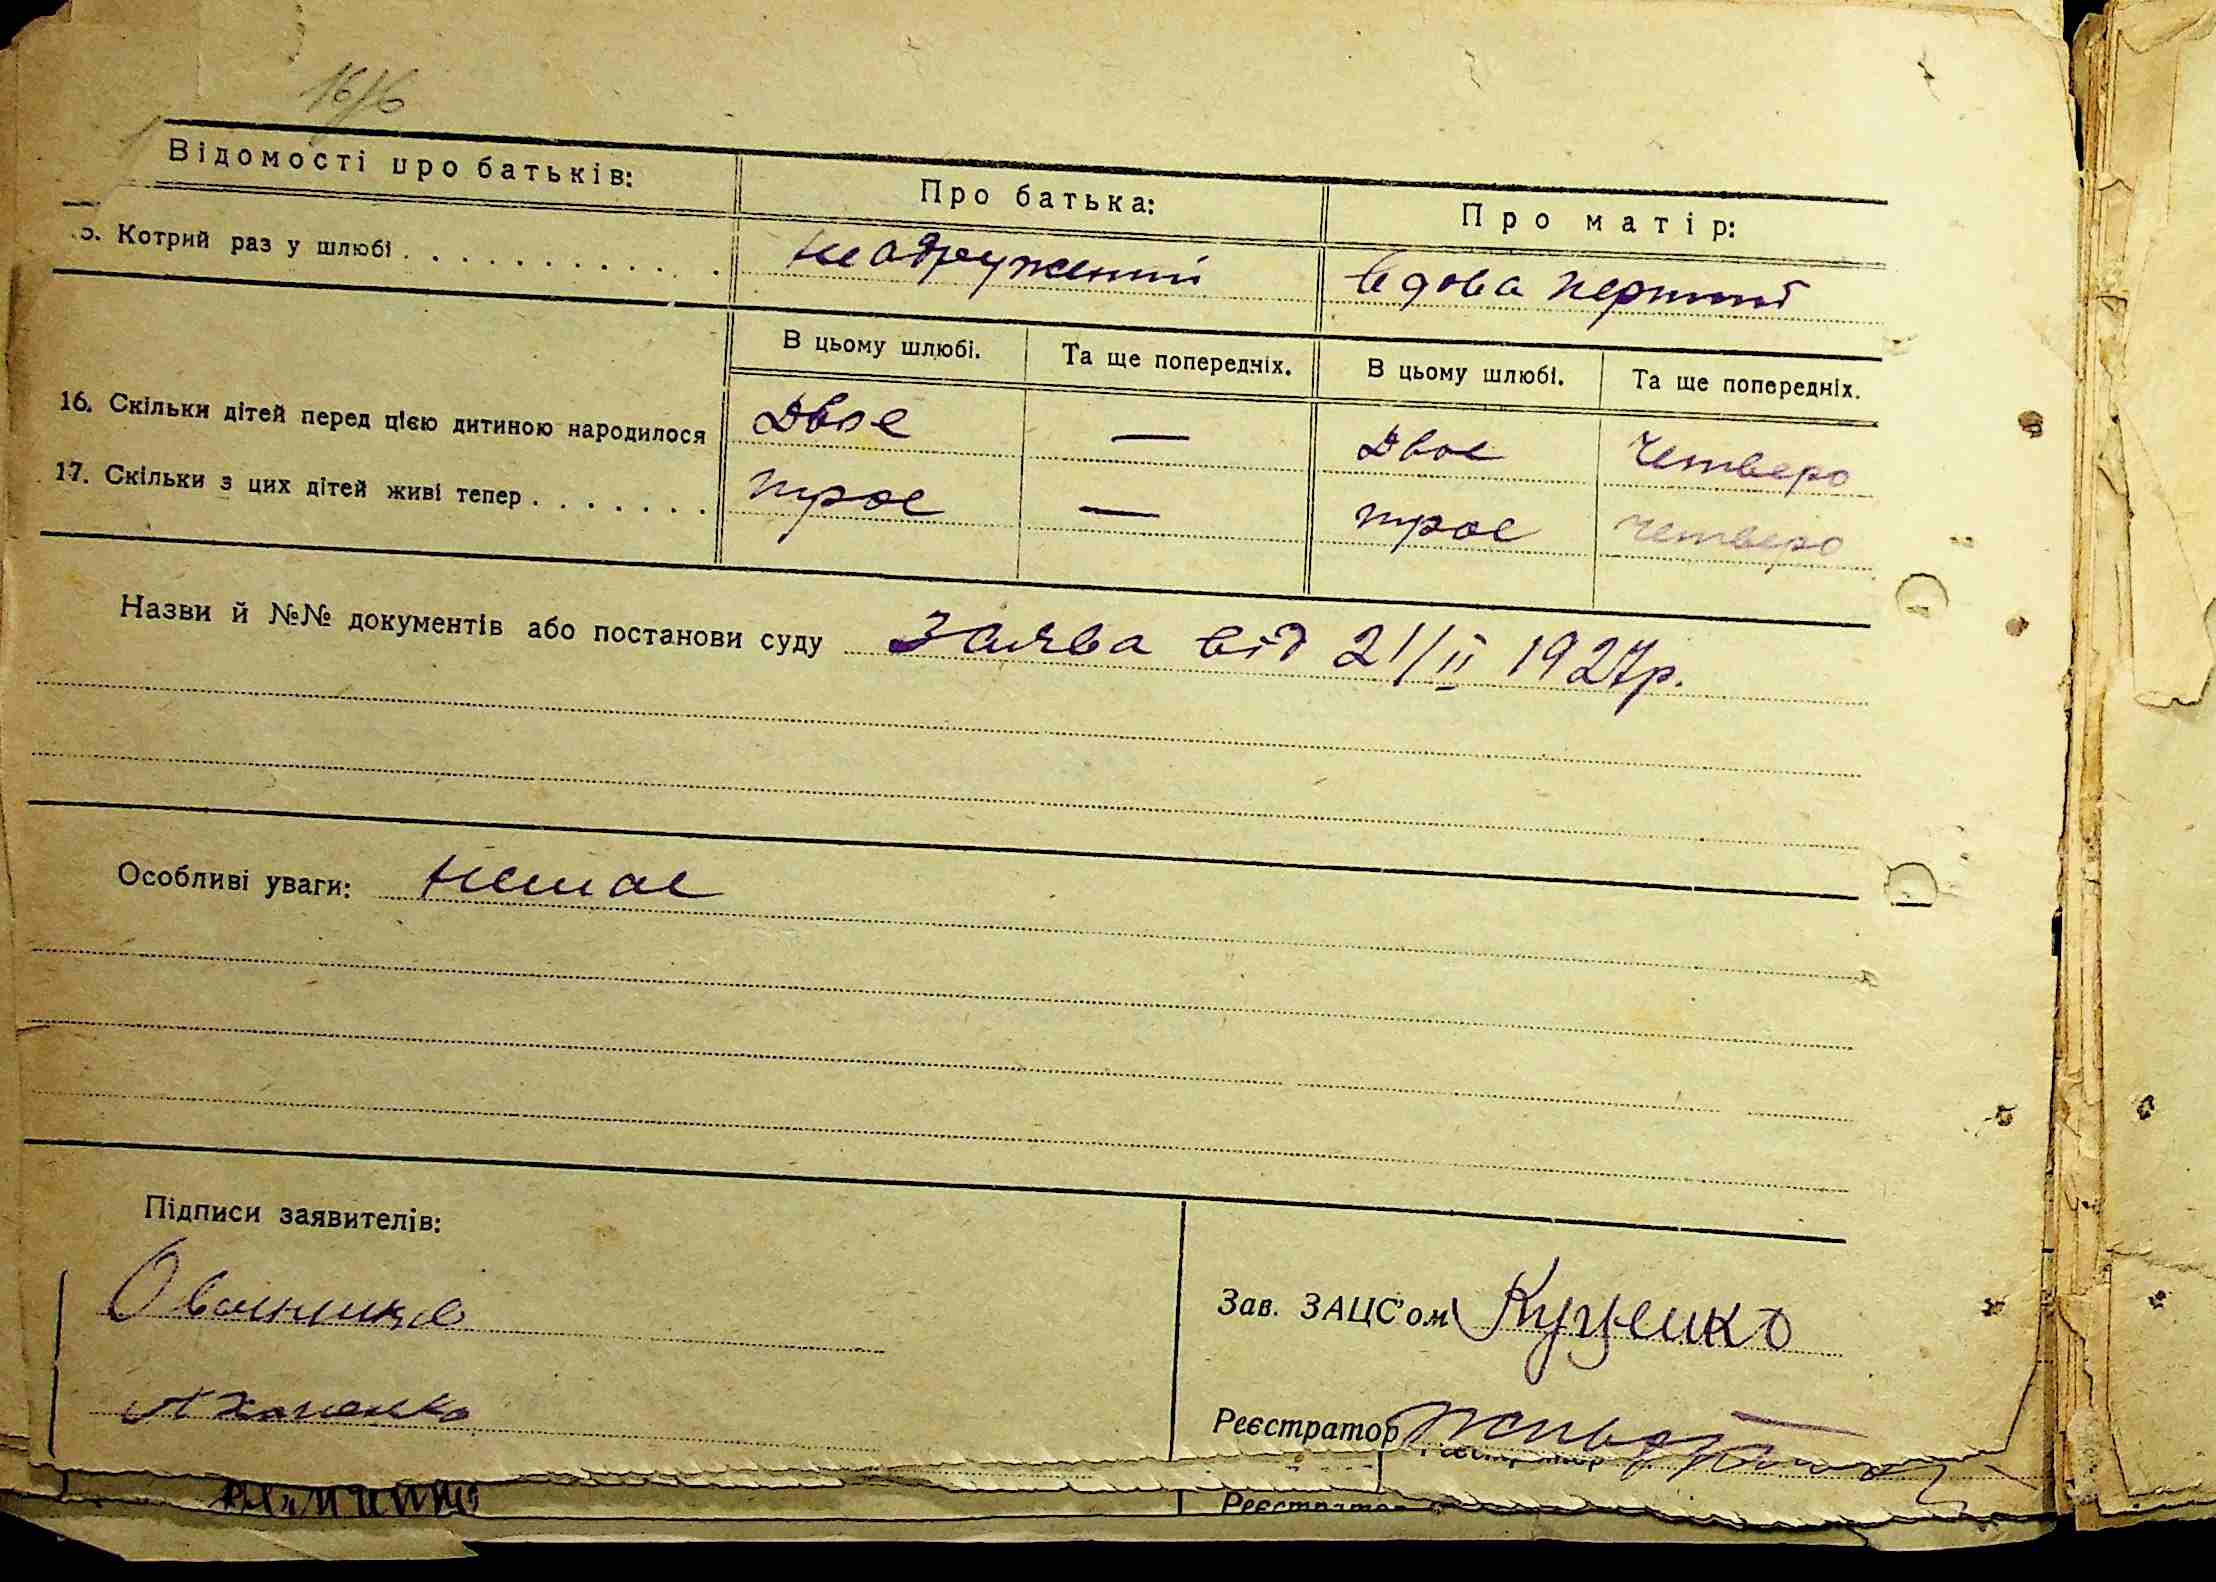 16/6
Відомості про батьків: Про батька: Про матір:
5. Котрий раз у шлюбі . . . . . . . . . . . . неодружений вдова перший
В цьому шлюбі. Та ще попередніх. В цьому шлюбі. Та ще попередніх.
16. Скільки дітей перед цією дитиною народилося двое — двое четверо
17. Скільки з цих дітей живі тепер . . . . . . . трое — трое четверо
Назви й №№ документів або постанови суду Заява від 21/II 1927р.
Особливі уваги: немае
Підписи заявителів:
Зав. ЗАЦС'ом Куценко
Реєстратор
Реєстратор
Реєстратор